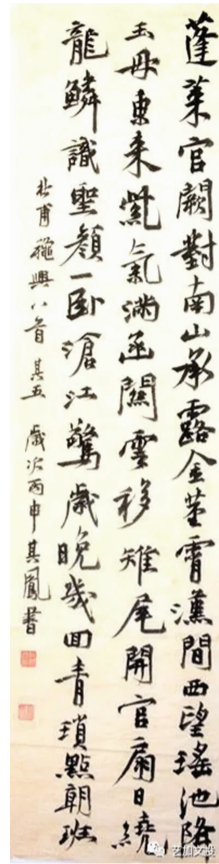 蓬莱宫闕對南山承露金莖霄漢間西望瑤池降
王母東来紫氣滿函關雲移雉尾開宫扇日繞
龍鱗識聖顔一卧滄江驚歲晚幾回青瑣點朝班
杜甫秋興八首其五 歲次丙申其鳳書
艺加文投